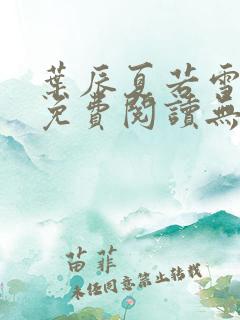 葉辰夏若雪
免費閱讀無
苗菲
未經同意禁止轉載